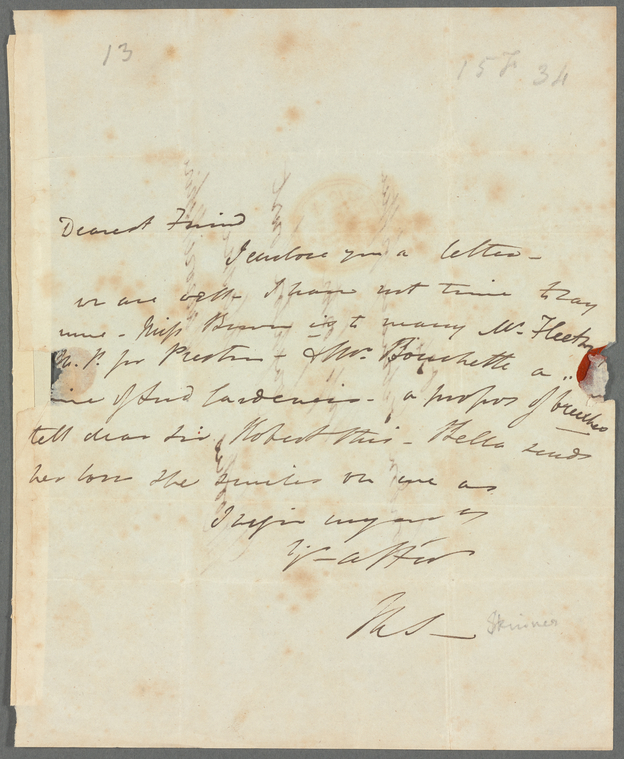 13
15 F. 34
Dearest Friend
I enclose you a letter -
we are well I have not time to say
more - Miss Brown is to marry Mr. Fleetw
M. P. for Preston - & Mr. Bouchette a
of Lord - a propos of breeches
tell dear Sir Robert this - Bella sends
her love she smiles on me as
I sign myself
Yr affte
M S -
Skinner